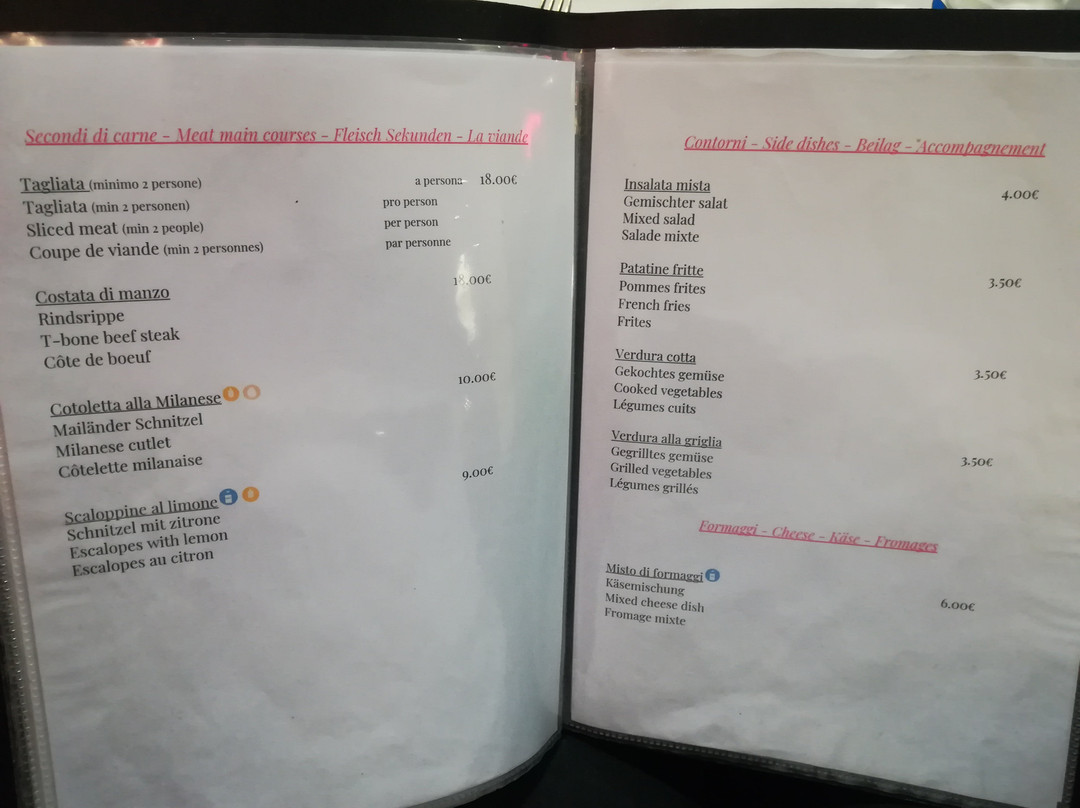 Secondi di carne - Meat main courses - Fleisch Sekunden - La viande
Tagliata (minimo 2 persone) a persona 18.00€
Tagliata (min 2 personen) pro person
Sliced meat (min 2 people) per person
Coupe de viande (min 2 personnes) par personne
Costata di manzo 18.00€
Rindsrippe
T-bone beef steak
Côte de boeuf
Cotoletta alla Milanese 10.00€
Mailänder Schnitzel
Milanese cutlet
Côtelette milanaise
Scaloppine al limone 9.00€
Schnitzel mit zitrone
Escalopes with lemon
Escalopes au citron
Contorni - Side dishes - Beilag - "Accompagnement
Insalata mista 4.00€
Gemischter salat
Mixed salad
Salade mixte
Patatine fritte 3.50€
Pommes frites
French fries
Frites
Verdura cotta 3.50€
Gekochtes gemüse
Cooked vegetables
Légumes cuits
Verdura alla griglia 3.50€
Gegrilltes gemüse
Grilled vegetables
Légumes grillés
Formaggi - Cheese - Käse - Fromages
Misto di formaggi 6.00€
Käsemischung
Mixed cheese dish
Fromage mixte